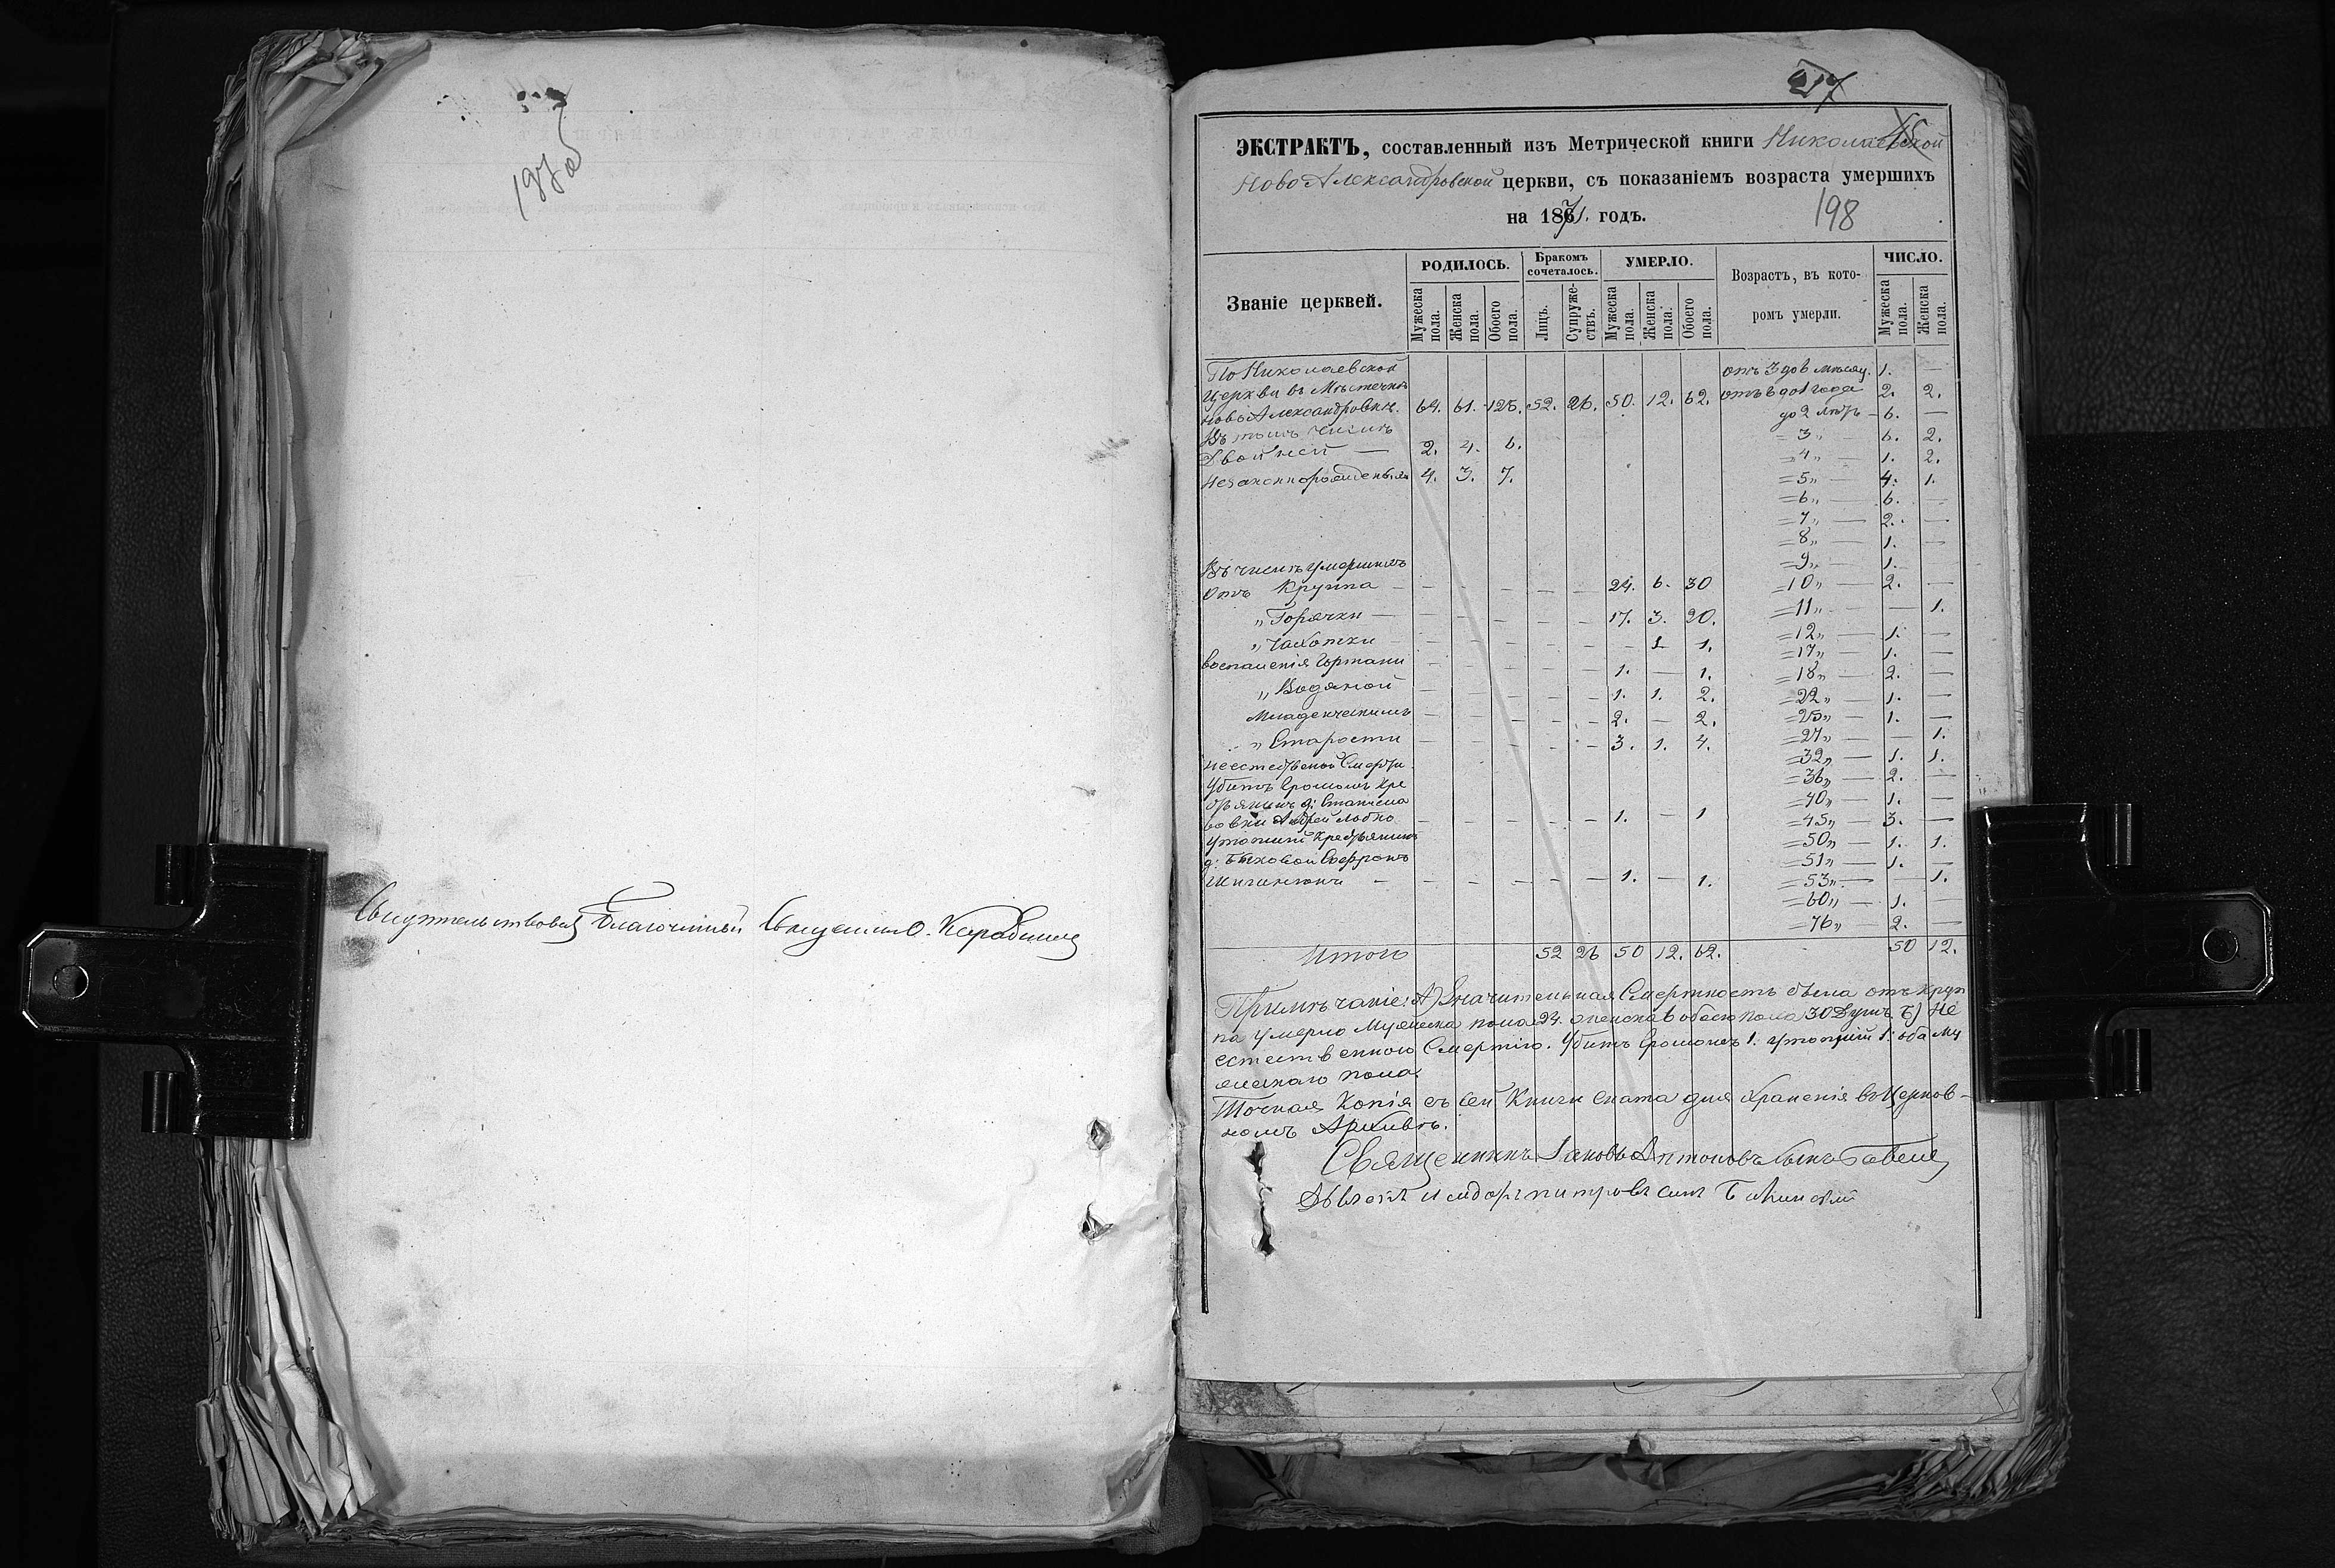 197об
Свидѣтельствовалъ Благочинный Священникъ О.
217
45
ЭКСТРАКТЪ, составленный изъ Метрической книги Николаевской
Ново Александровской церкви, съ показаніемъ возраста умершихъ
на 1871. годъ.
198
Званіе церквей.
РОДИЛОСЬ.
Мужеска пола.
Женска пола.
Обоего пола.
Бракомъ сочеталось.
Лицъ.
Супружествъ.
УМЕРЛО.
Мужеска пола.
Женска пола.
Обоего пола.
Возрастъ, въ которомъ умерли.
ЧИСЛО.
Мужеска пола.
Женска пола.
По Николаевской
Церкви въ Мѣстечкѣ
Ново Александровкѣ. 64. 61. 125. 52. 26. 50. 12. 62.
Въ томъ числѣ
Двойней — 2. 4. 6.
Незаконнорожденныхъ 4. 3. 7.
Въ числѣ умершихъ
Отъ Круппа — 24. 6. 30
„ Горячки — 17. 3. 20.
„ Чахотки — 1 1.
Воспаленія Гортани 1. — 1.
„ Водяной 1. 1. 2.
Младенческимъ 2. — 2.
„ Старости 3. 1. 4.
Неестественой Смерти
Убитъ Громомъ Кре
стьянинъ д:
Андрей 1. — 1
утопшій Крестьянинъ
д:
1. — 1.
отъ 3 до 6 мѣсяц. 1. —
отъ 6 до 1 года 2. 2.
до 2 лѣтъ - 6. —
= 3 „ — 6. 2.
= 4 „ — 1. 2.
= 5 „ — 4. 1.
= 6 „ — 6. -
= 7 „ — 2. —
= 8 „ — 1. —
= 9 „ — 1. -
= 10 „ — 2. —
= 11 „ — — 1.
= 12 „ — 1. —
= 17 „ — 1. —
= 18 „ — 2. —
= 22 „ — 1. —
= 25 „ — 1. —
= 27 „ — — 1.
= 32 „ — 1. 1.
= 36 „ — 2. —
= 40 „ — 1. —
= 45 „ — 3. —
= 50 „ — 1. 1.
= 51 „ — 1. —
= 53 „ — 1.
= 60 „ — 1. —
= 76 „ — 2. —
Итого 52 26 50 12. 62. 50 12.
Примѣчаніе: А) Значительная Смертность была отъ Круп
па умерло Мужеска пола 24. женска 6 обоего пола 30 Душъ. Б) Не
естественною Смертію. Убитъ Громомъ 1. утопшій 1. оба му
жескаго пола.
Точная Копія съ сей Книги снята для Храненія въ Церков-
номъ Архивѣ.
Священникъ Іаковъ Антоновъ сынъ
Дьячекъ